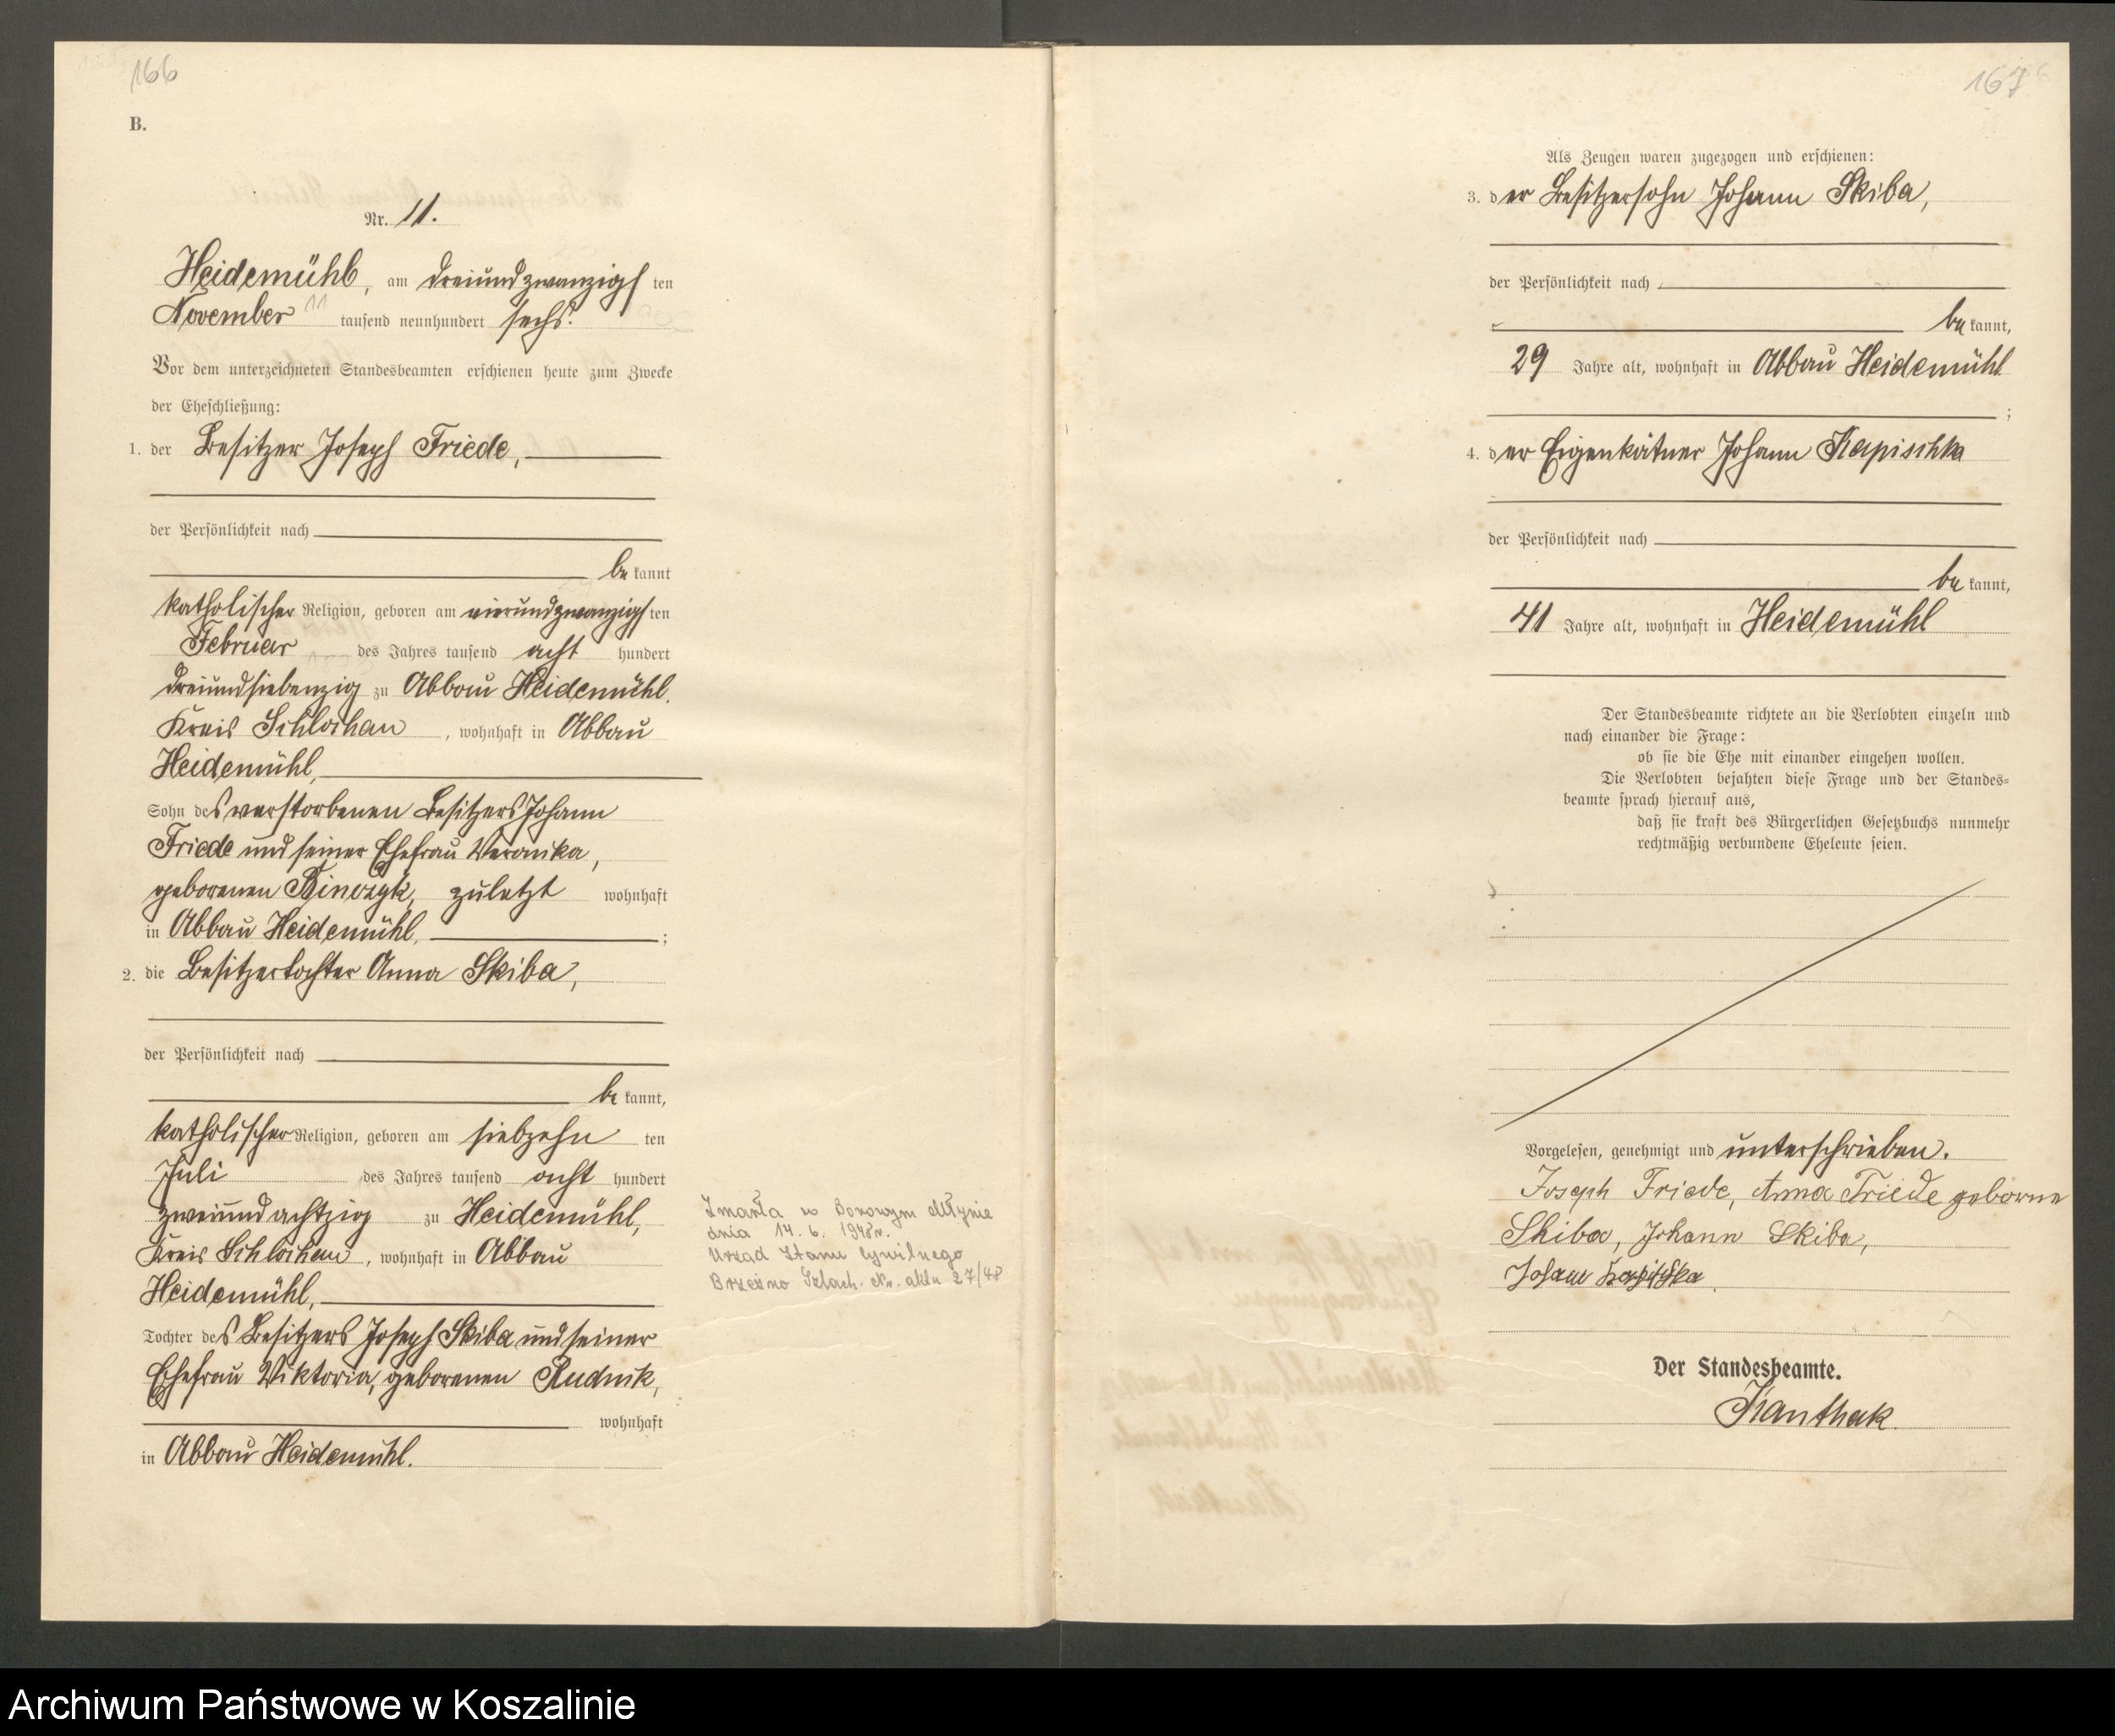 166
B.
Nr. 11.
Heidemühl, am dreiundzwanzigsten
November 11 tausend neunhundert sechs.
Vor dem unterzeichneten Standesbeamten erschienen heute zum Zwecke
der Eheschließung:
1. der Besitzer Joseph Friede,
der Persönlichkeit nach
bekannt
katholischer Religion, geboren am vierundzwanzigsten
Februar des Jahres tausend acht hundert
dreiundsiebenzig zu Abbau Heidemühl,
Kreis Schlochau, wohnhaft in Abbau
Heidemühl,
Sohn des verstorbenen Besitzers Johann
Friede und seiner Ehefrau Veronika,
geborenen Binczyk, zuletzt wohnhaft
in Abbau Heidemühl,;
2. die Besitzertochter Anna Skiba,
der Persönlichkeit nach
bekannt,
katholischer Religion, geboren am siebzehnten
Juli des Jahres tausend acht hundert
zweiundachtzig zu Heidemühl,
Kreis Schlochau, wohnhaft in Abbau
Heidemühl,
Tochter des Besitzers Joseph Skiba und seiner
Ehefrau Viktoria, geborenen Rudnik,
wohnhaft
in Abbau Heidemühl.
Zmarła w Borowym Młynie
dnia 14. 6. 1948r.
Urząd Stanu Cywilnego
Brzeźno Szlach. Nr. aktu 27/48
167
Als Zeugen waren zugezogen und erschienen:
3. der Besitzersohn Johann Skiba,
der Persönlichkeit nach
bekannt,
29 Jahre alt, wohnhaft in Abbau Heidemühl
;
4. der Eigenkätner Johann Kapischka
der Persönlichkeit nach
bekannt,
41 Jahre alt, wohnhaft in Heidemühl
Der Standesbeamte richtete an die Verlobten einzeln und
nach einander die Frage:
ob sie die Ehe mit einander eingehen wollen.
Die Verlobten bejahten diese Frage und der Standes-
beamte sprach hierauf aus,
daß sie kraft des Bürgerlichen Gesetzbuchs nunmehr
rechtmäßig verbundene Eheleute seien.
Vorgelesen, genehmigt und unterschrieben.
Joseph Friede, Anna Friede geborne
Skiba, Johann Skiba,
Johann Kapischka.
Der Standesbeamte.
Kanthak.
Archiwum Państwowe w Koszalinie